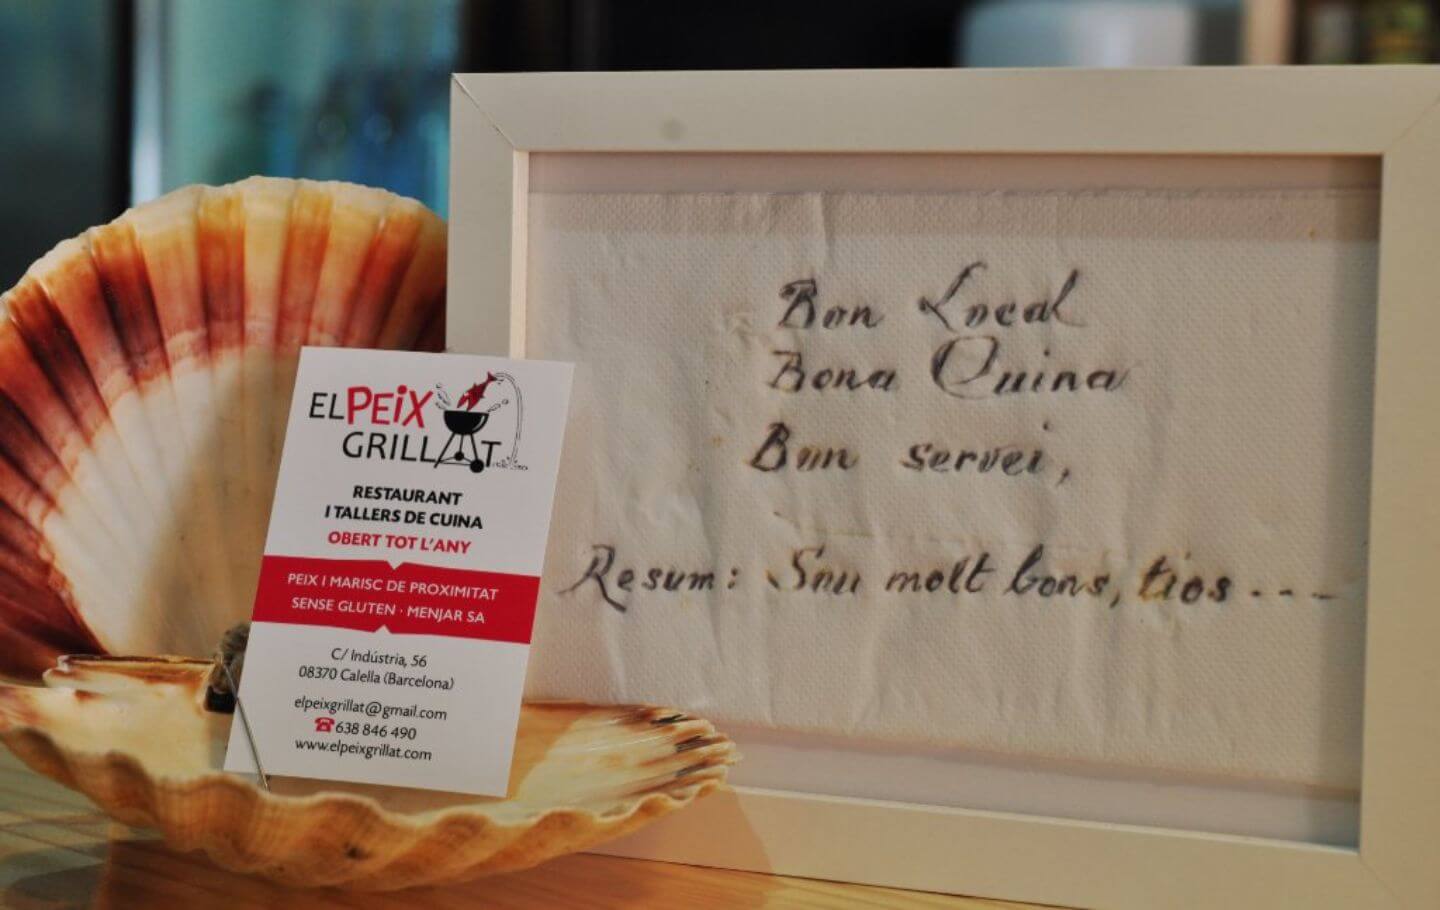 ELPEiX
GRILLAT
RESTAURANT
I TALLERS DE CUINA
OBERT TOT L'ANY
PEIX I MARISC DE PROXIMITAT
SENSE GLUTEN · MENJAR SA
C/ Indústria, 56
08370 Calella (Barcelona)
elpeixgrillat@gmail.com
☎638 846 490
www.elpeixgrillat.com
Bon Local
Bona Cuina
Bon servei,
Resum: Sou molt bons, tios ----